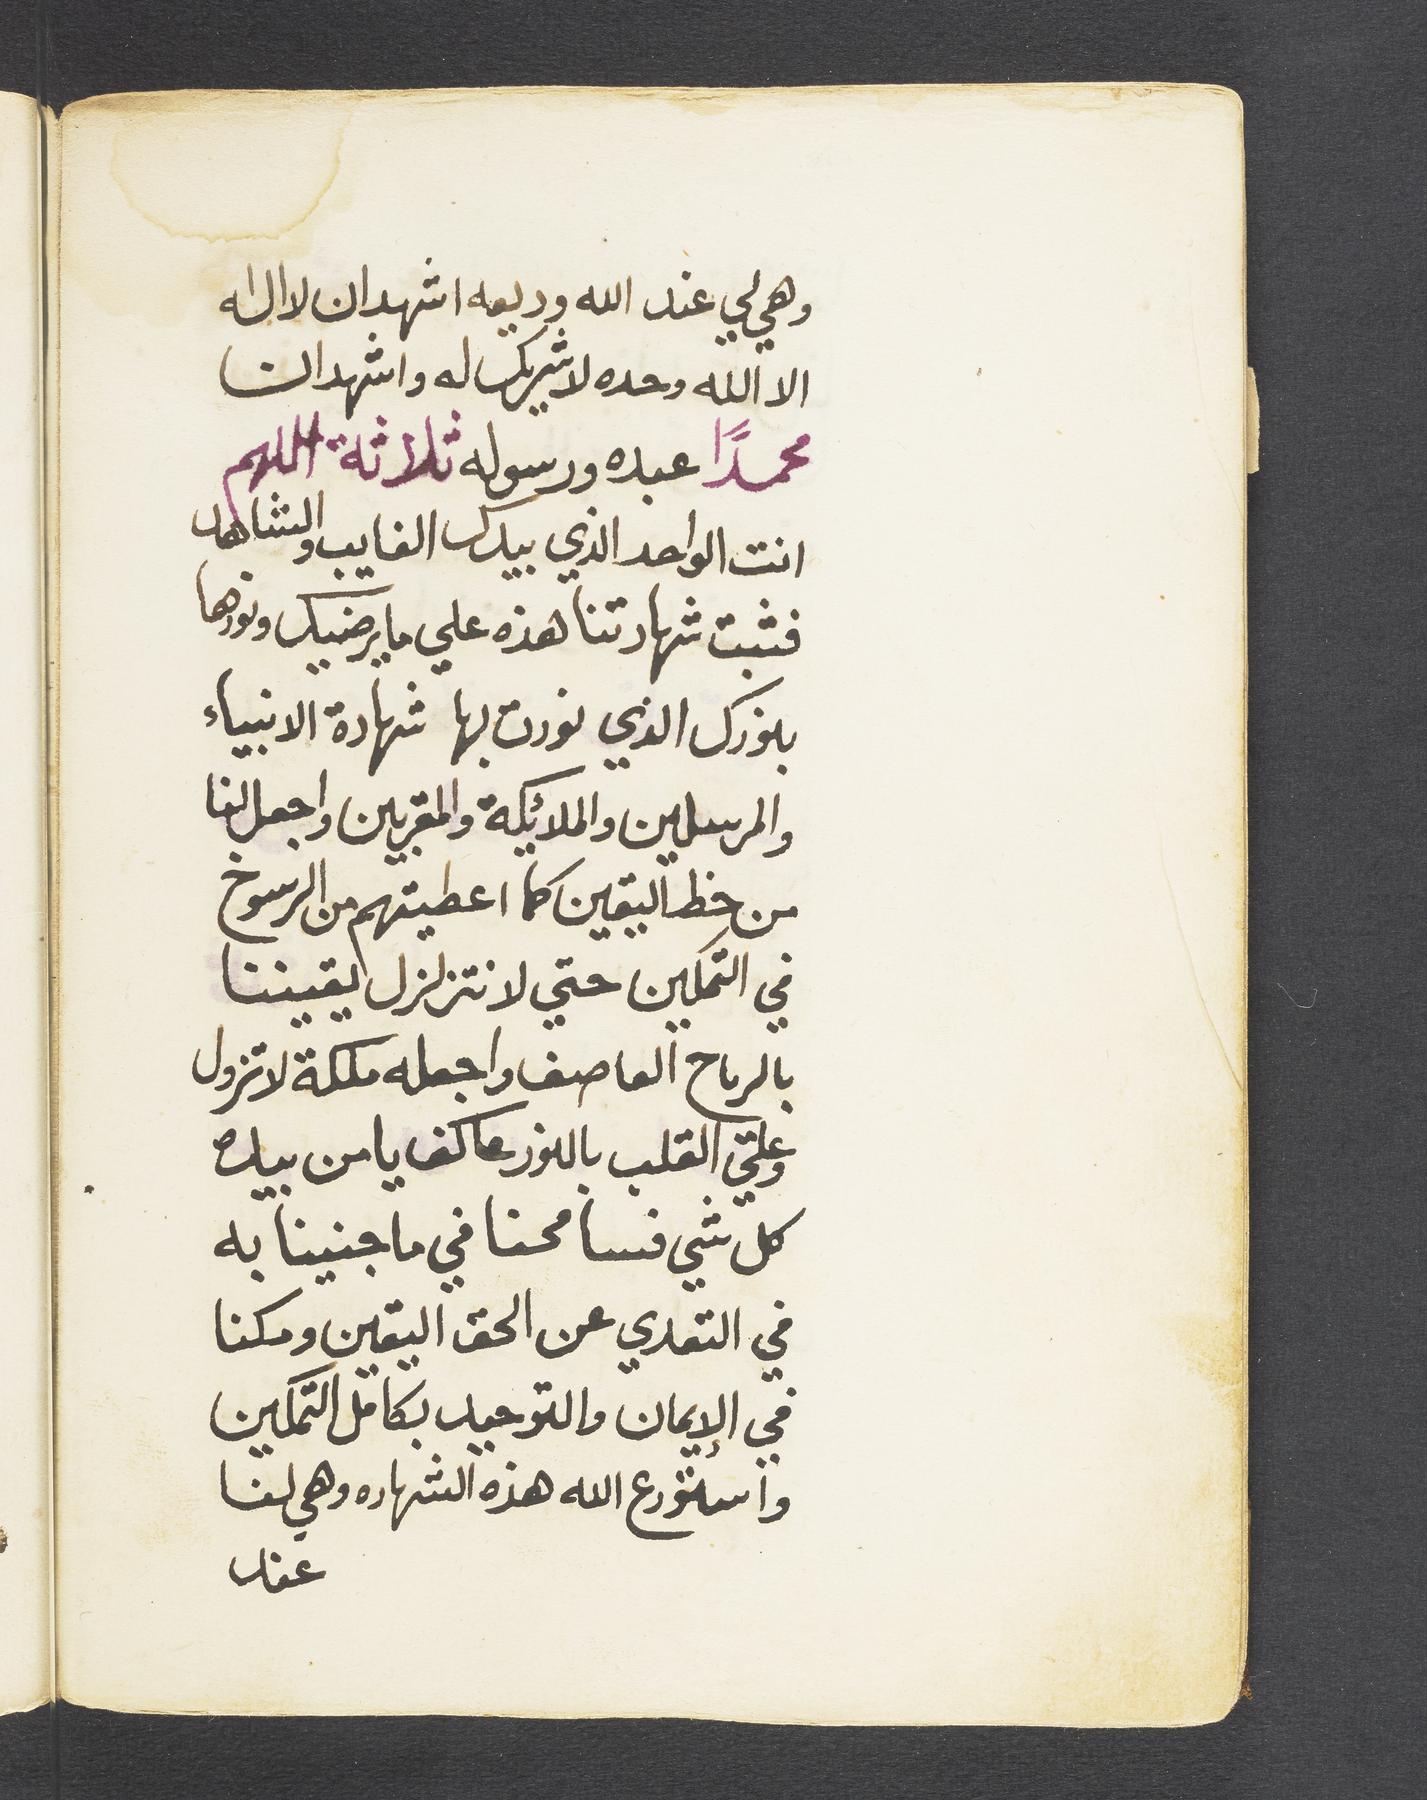 وهي لي عند الله وديعه اشهد ان لا اله
الا الله وحده لا شريك له واشهد ان
محمدًا عبده ورسوله ثلاثة اللهم
انت الواحد الذي بيدك الغايب والشاهد
فثبت شهادتنا هذه علي ما يرضيك ونورها
بنورك الذي نورت بها شهادة الانبياء
والمرسلين والملائكة والمقربين واجعل لنا
من حظ اليقين كما اعطيتهم من الرسوخ
في التمكين حتي لا نتزلزل يقيننا
بالرياح العاصف واجعله ملكة لا تزول
وعلي القلب بالنور عاكف يا من بيده
كل شي فسامحنا في ما جنينا به
في التعدي عن الحق اليقين ومكنا
في الإيمان والتوحيد بكامل التمكين
واستودع الله هذه الشهاده وهي لنا
عند